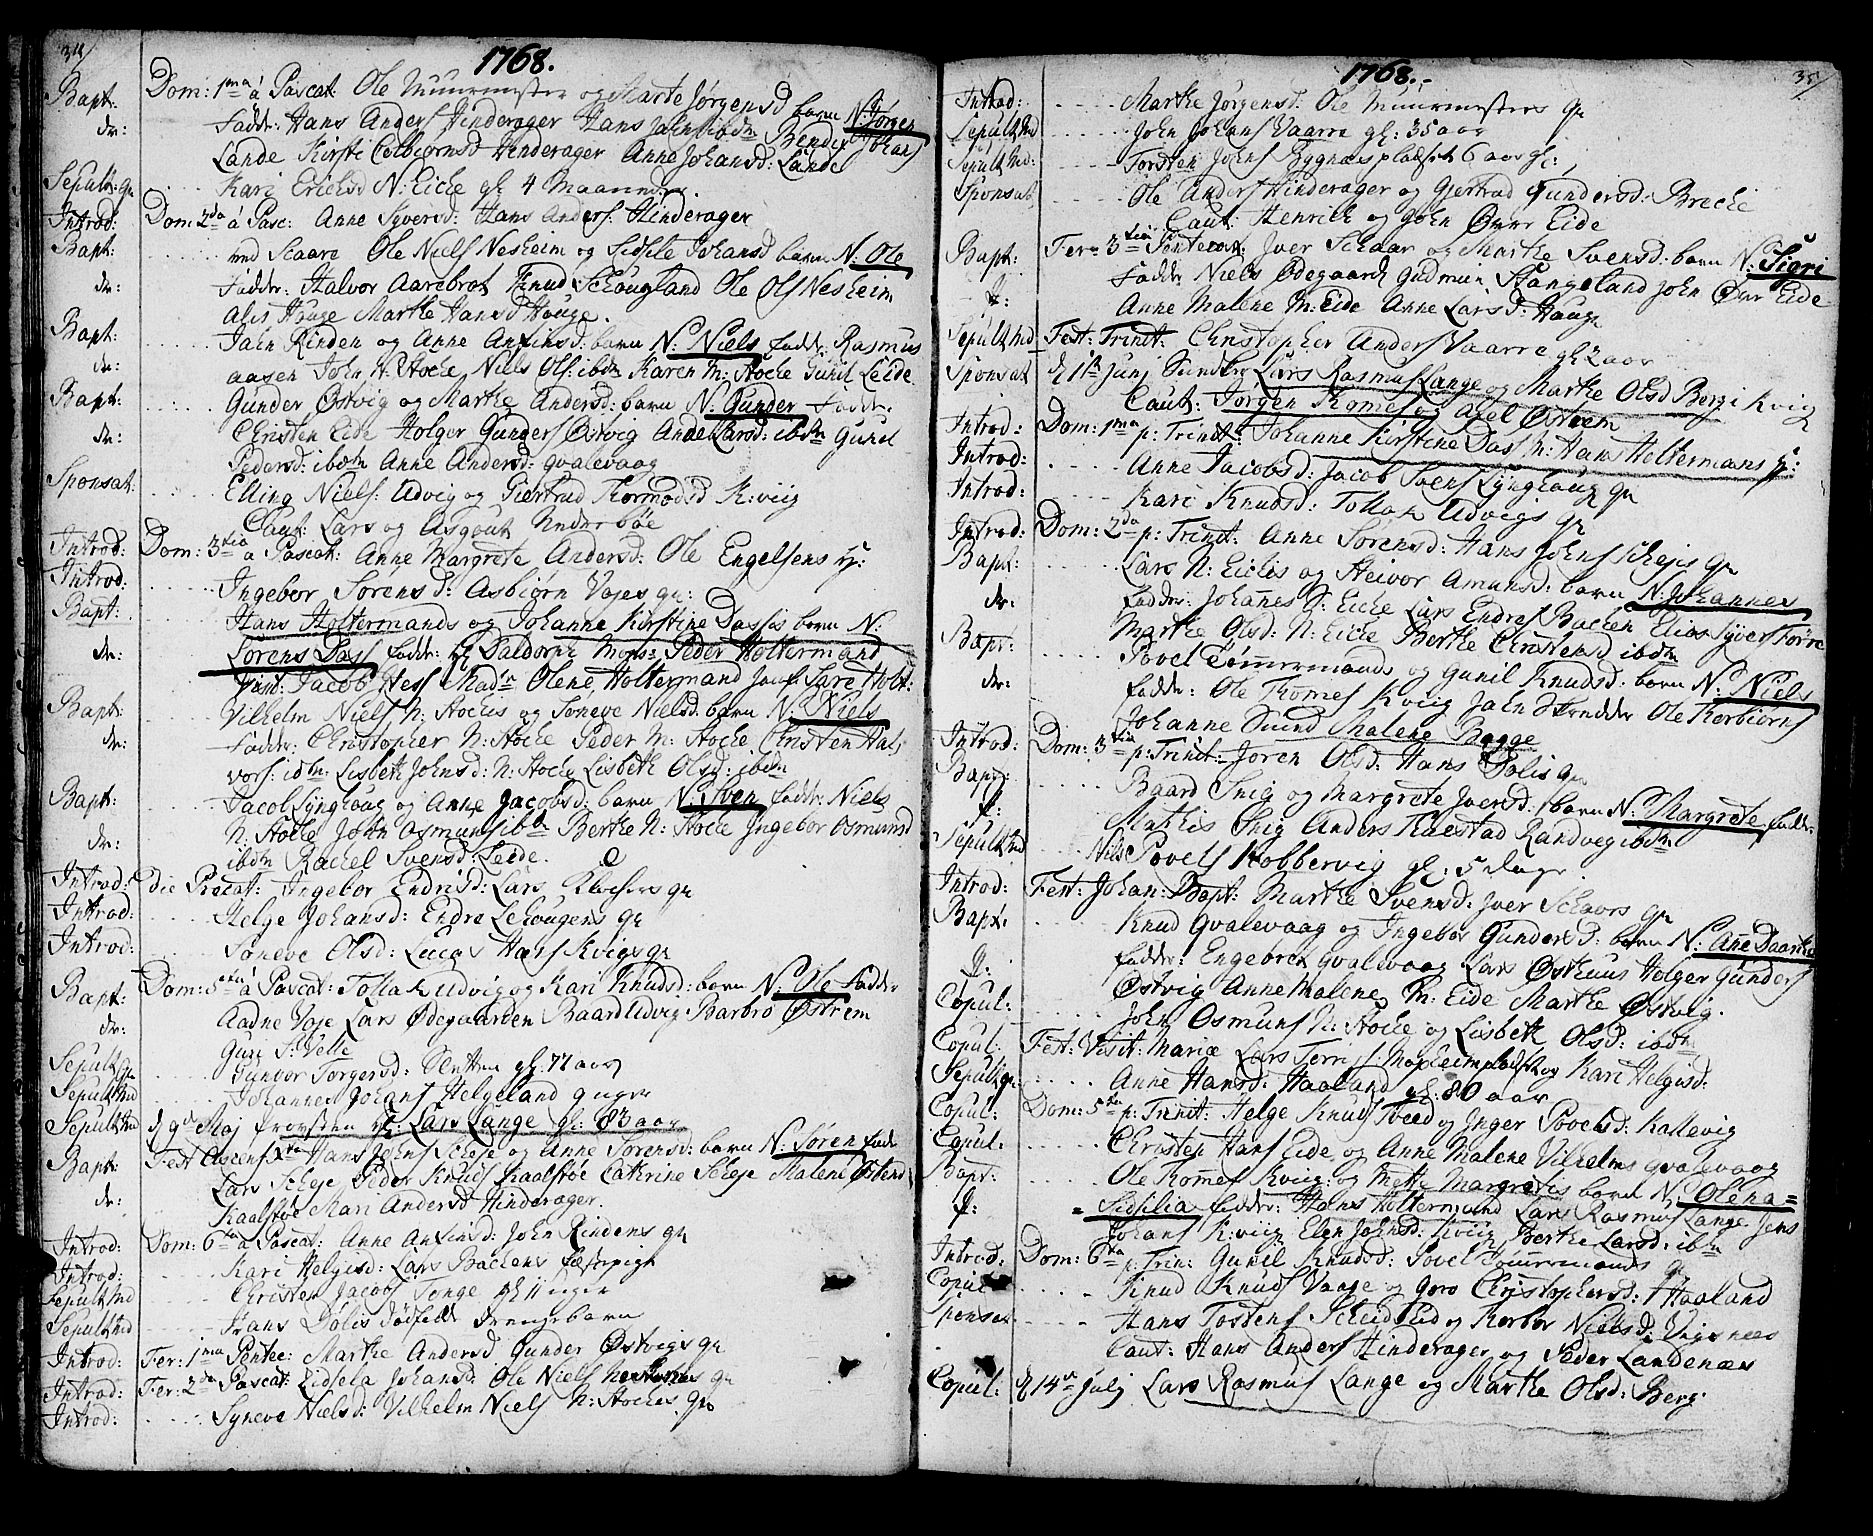 34/
1768.
Bapt: Dom: 1ma a Pascat: Ole Muurmester og Marte Jørgensd barn N: Jørgen
dr: Faddr: Hans Anders Hinderager Hans Johns ibdm Bendix Johans
Lande Kirsti Hinderager Anne Johansd: Lande
Sepult: qv. Kari Ericksd N: Eicke gl 4 Maaneder.
Introd: Dom: 2da a Pasc: Anne Syversd: Hans Anders: Hinderager
Bapt: ved Skaare Ole Niels Nesheim og Sidsele Johansd barn N: Ole
dr: Faddr: Halvor Aarebrot Knud Schougland Ole Ols Nesheim
Alis Hauge Marthe Hansd Hauge.
Bapt: John Rinden og Anne Anfinsd: barn N: Niels fadd: Rasmus
dr: aasen John N: Stocke Niels Ols: ibdm Karen M: Stocke Gunil Leide
Bapt: Gunder Østvig og Marthe Andersd: barn N: Gunder Faddr:
dr: Christen Eide Holger Gunders Østvig Anne Larsd: ibdm Gunil
Pedersd: ibdm Anne Andersd: Qvalevaag
Sponsat: Elling Niels: Udvig og Giertrud Thormodsd K:viig
Caut: Lars og Asgout Nederbøe
Introd: Dom: 3tia a Pascat: Anne Margrete Andersd: Ole Engelsens q:
Introd: Ingebor Sørensd: Asbiørn Vojes qv:
Bapt: Hans Holtermands og Johanne Kirstine Dasses barn N:
dr: Sørens Dass faddr: Hr Daldorph Mons: Peder Holtermand
Jacob Hess Madm Olene Holtermand Jomf Sare Holt:
Bapt: Vilhelm Niels N: Stockes og Søneve Nielsd: barn N: Niels
dr: Faddr: Christopher N: Stocke Peder M: Stocke Christen Hal-
vors: ibdm Lisbeth Johnsd: N: Stocke Lisbeth Olsd: ibdm
Bapt: Jacob Lynghaug og Anne Jacobsd: barn N: Sven faddr: Niels
dr: N: Stocke John Osmunds ibdm Berthe N: Stocke Ingebor Osmunsd
ibdm Rachel Svensd: Leide.
Introd: die Precat: Ingebor Endrisd: Lars Klockers qv
Introd: Helge Johansd: Endre Lehougens qv
Introd: Søneve Olsd: Lucas Hans Kvigs qv
Bapt: Dom: 5ta a Pascat: Tollak Udvig og Kari Knudsd: barn N: Ole Faddr
dr: Aadne Voje Lars Ødegaarden Baard Udvig Barbro Østrem
Guri S: Velle
Sepult qv Gunvor Torgersd: Sletten gl: 77 aar
Sepult Md Johannes Johans Helgeland 9 uger
Sepult Md d 9de Maj provsten Hr: Lars Lange gl: 83 aar
Bapt: Fest Ascens: Xti Hans Johns Scheje og Anne Sørensd: barn N: Søren fadd
dr: Lars Scheje Peder Knuds Kaalstøe Cathrine Scheje Malene Østend
Kaalstøe Mari Andersd Hinderager.
Introd: Dom: 6ta a Pascat: Anne Anfinsd: John Rindens qv
Introd: Kari Helgisd: Lars Backens fæstepige
Sepult Md Christen Jacobs Tonge gl 11 uger
Sepult Md Hans Dølis dødfødte drengebarn
Introd: Fer: 1ma Pentec: Marthe Andersd Gunder Østvigs qv
Introd: Fer: 2da Pascat: Sidsela Johansd: Ole Niels Nesheims qv
Introd: Syneve Nielsd: Vilhelm Niels N: Stockes qv
35/
1768.
Introd: Marthe Jørgensd: Ole Muurmesters qv
Sepult Md John Johans Vaarre gl: 35 aar
Sepult Md: Torsten Johns Bygnæs pladset 6 aar gl:
Sponsat Ole Anders Hinderager og Giertrud Gundersd: Brecke
Caut: Henrich og John Øvre Eide
Bapt: Fer: 3tia Pentecost: Iver Schaar og Marthe Svensd: barn N: Sigri
dr: Faddr Niels Ødegaard Gudmun Stangeland John Øvre Eide
Anne Malene M: Eide Anne Larsd: Haugn
Sepult Md Fest: Trinit: Christopher Anders Vaarre gl 2 aar
Sponsat d 1te Junj Lars Rasmus Lange og Marthe Olsd Berge Kvig
Caut: Jørgen Thomes og Axel Østrem
Introd: Dom: 1ma p: Trinit: Johanne Kirstine Das M: Hans Holtermans q:
Introd: Anne Jacobsd: Jacob Svens Lynghaug qv
Introd: Kari Knudsd: Tollak Udvigs qv
Introd: Dom: 2da p: Trinit: Anne Sørensd: Hans Johns Schejes qv
Bapt: Lars N: Eickes og Steivor Amunsd: barn N: Johannes
dr: faddr: Johannes S: Eicke Lars Endres Backen Elias Syvers Førre
Marthe Olsd: N: Eicke Berthe Christensd ibdm
Bapt: Povel Tømmermands og Gunil Knudsd: barn N: Niels
dr: faddr: Ole Thomes Kviig John Skredder Ole Thorbiørns
Johanne Sund Malene Bagge
Introd: Dom: 3tia p: Trinit: Jøren Olsd: Hans Dølis qv
Bapt: Baard Snig og Margrete Iversd: barn N: Margrete faddr:
dr: Mathis Snig Anders Thuestad Randveg ibdm
Sepult Md Nils Povels Kobbervig gl: 5 dage.
Introd: Fest: Johan: Bapt: Marthe Svensd: Iver Schaars qv
Bapt: Knud Qvalevaag og Ingebor Gundersd: barn N: Anne Daarthe
dr: faddr: Engebret Qvalevaag Lars Østhuus Holger Gunders
Østvig Anne Malene M: Eide Marthe Østvig.
Copul: John Osmuns N: Stocke og Lisbeth Olsd: ibdm
Copul: Fest: Visit: Mariæ Lars Terris: Nopleimpladset og Kari Helgisd:
Sepult qv: Anne Hansd: Haaland gl: 80 aar
Copul: Dom: 5ta p: Trinit: Helge Knuds Tveed og Inger Povelsd: Kallevig
Copul: Christen Hans Eide og Anne Malene Vilhelms Qvalevaag
Bapt: Ole Thomes Kviig: og Mette Margretes barn N: Olena=
dr: =Sidsilia faddr: Hans Holtermand Lars Rasmus Lange Jens
Johans K:viig Elen Johnsd: Kviig Berthe Larsd: ibdm
Introd: Dom: 6ta p: Trin: Gunil Knudsd: Povel Tømmermands qv
Copul: Knud Knuds Vaage og Goro Christophersd: Haaland
Sponsat Hans Tostens Scheidelid og Thorbor Nielsd: Vigsnæs
Caut: Hans Anders Hinderager og Peder Landenæs
Copul: d 14de Julj Lars Rasmus Lange og Marthe Olsd: Berg